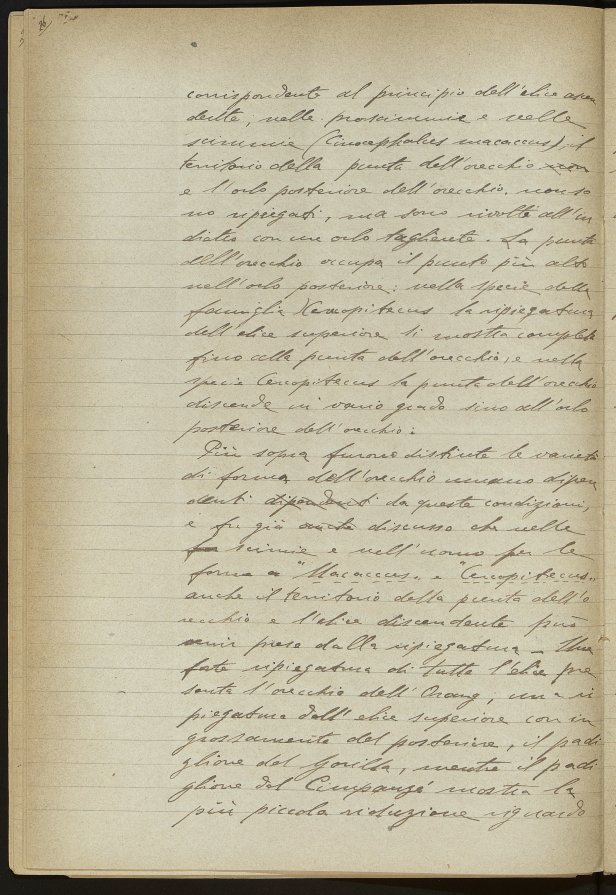 26
corrispondente al principio dell'elice ascen
dente; nelle proscimmie e nelle
scimmie (Cinocephalus macaccus), il
territorio della punta dell'orecchio non
e l'orlo posteriore dell'orecchio, non so
no ripiegati, ma sono rivolti all'in
dietro con un orlo tagliente. La punta
dell'orecchio occupa il punto più alto
nell'orlo posteriore: nella specie della
famiglia la ripiegatura
dell'elice superiore si mostra completa
fino alla punta dell'orecchio, e nella
specie Cercopitecus la punta dell'orecchio
discende in vario grado sino all'orlo
posteriore dell'orecchio:
Più sopra furono distinte le varietà
di forma dell'orecchio umano dipen
denti dipendenti da queste condizioni,
e fu già anche discusso che nelle
scimie e nell'uomo per le
forme a "Macaccus" e "Cercopitecus"
anche il territorio della punta dell'o
recchio e l'elice discendente può
venir preso dalla ripiegatura — Una
forte ripiegatura di tutta l'elice pre
senta l'orecchio dell'Orang; una ri
piegatura dell'elice superiore con in
grossamento del posteriore, il padi
glione del Gorilla, mentre il padi
glione del Cimpanzé mostra la
più piccola riduzione riguardo